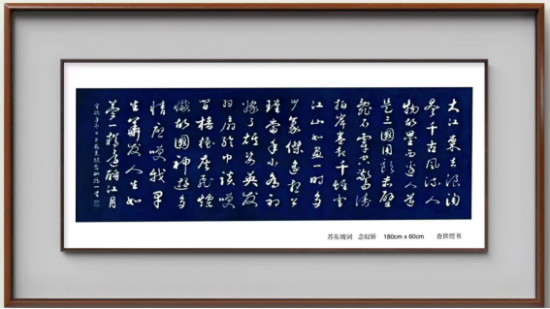 大江東去浪淘
盡千古風流人
物故壘西邊人道
是三國周郎赤壁
亂石穿空驚濤
拍岸卷起千堆雪
江山如畫一時多
少豪傑遙想公
瑾當年小喬初
嫁了雄姿英發
羽扇綸巾談笑
間檣櫓灰飛煙
滅故國神遊多
情應笑我早
生華髮人生如
夢一樽還酹江月
苏东坡词 念奴娇 180cm x 60cm